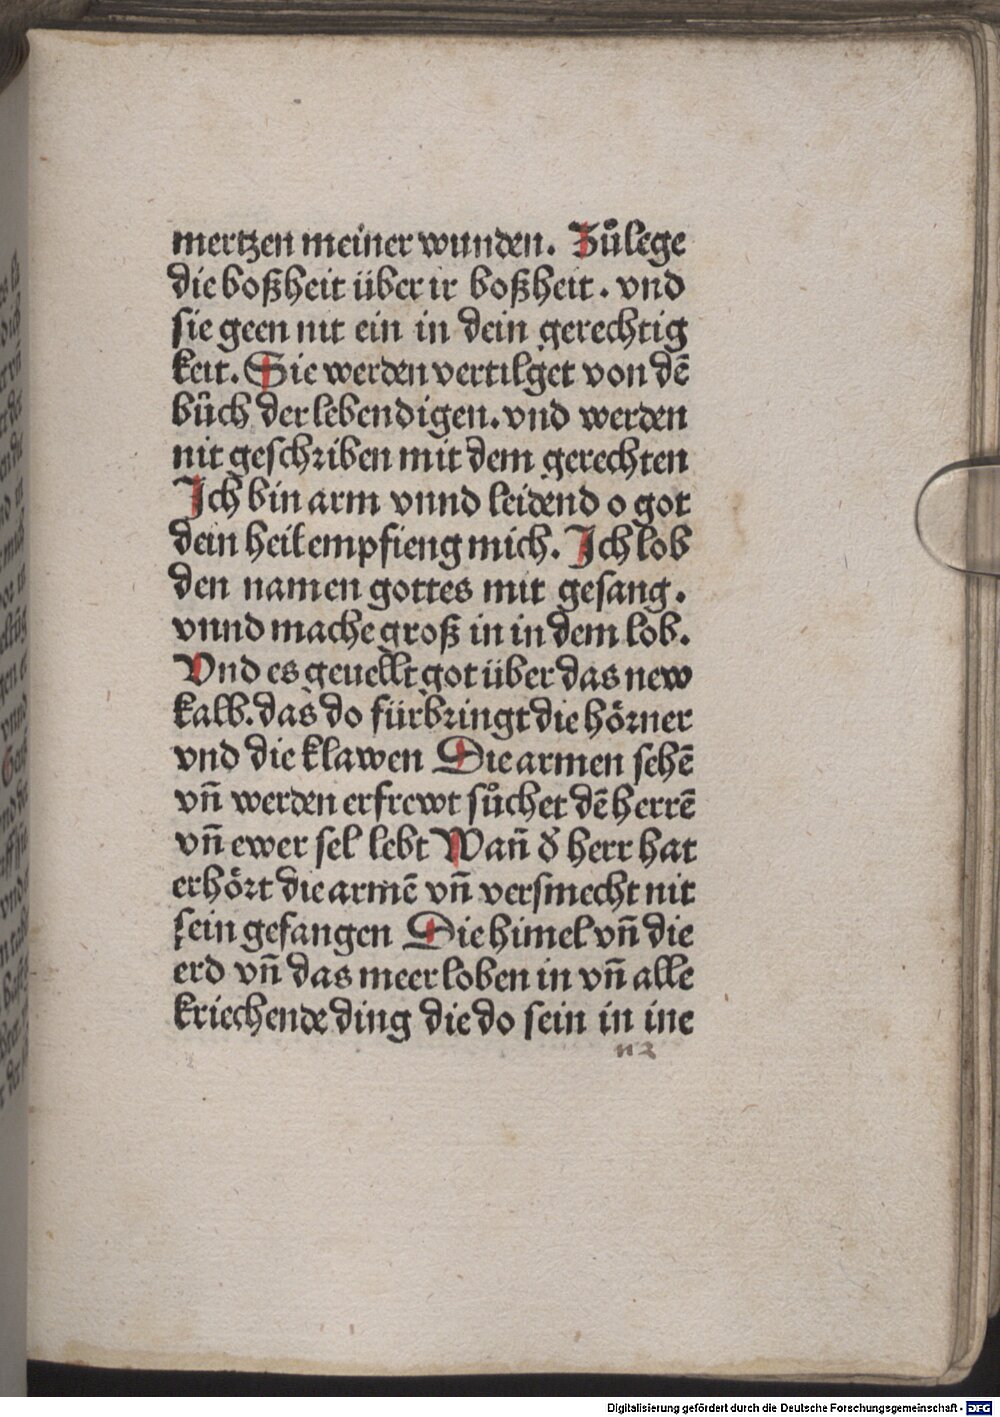 mertzen meiner wunden. Zůlege
die boßheit über ir boßheit. vnd
sie geen nit ein in dein gerechtig
keit. Sie werden vertilget von dē
bůch der lebendigen. vnd werden
nit geschriben mit dem gerechten
Ich bin arm vnnd leidend o got
dein heil empfieng mich. Ich lob
den namen gottes mit gesang.
vnnd mache groß in in dem lob.
Vnd es geuellt got über das new
kalb. das do fürbringt die hörner
vnd die klawen Die armen sehē
vñ werden erfrewt sůchet dē herrē
vñ ewer sel lebt Wañ d̕ herr hat
erhört die armē vñ versmecht nit
sein gefangen Die himel vñ die
erd vñ das meer loben in vñ alle
kriechende ding die do sein in ine
n 2
Digitalisierung gefördert durch die Deutsche Forschungsgemeinschaft - DFG